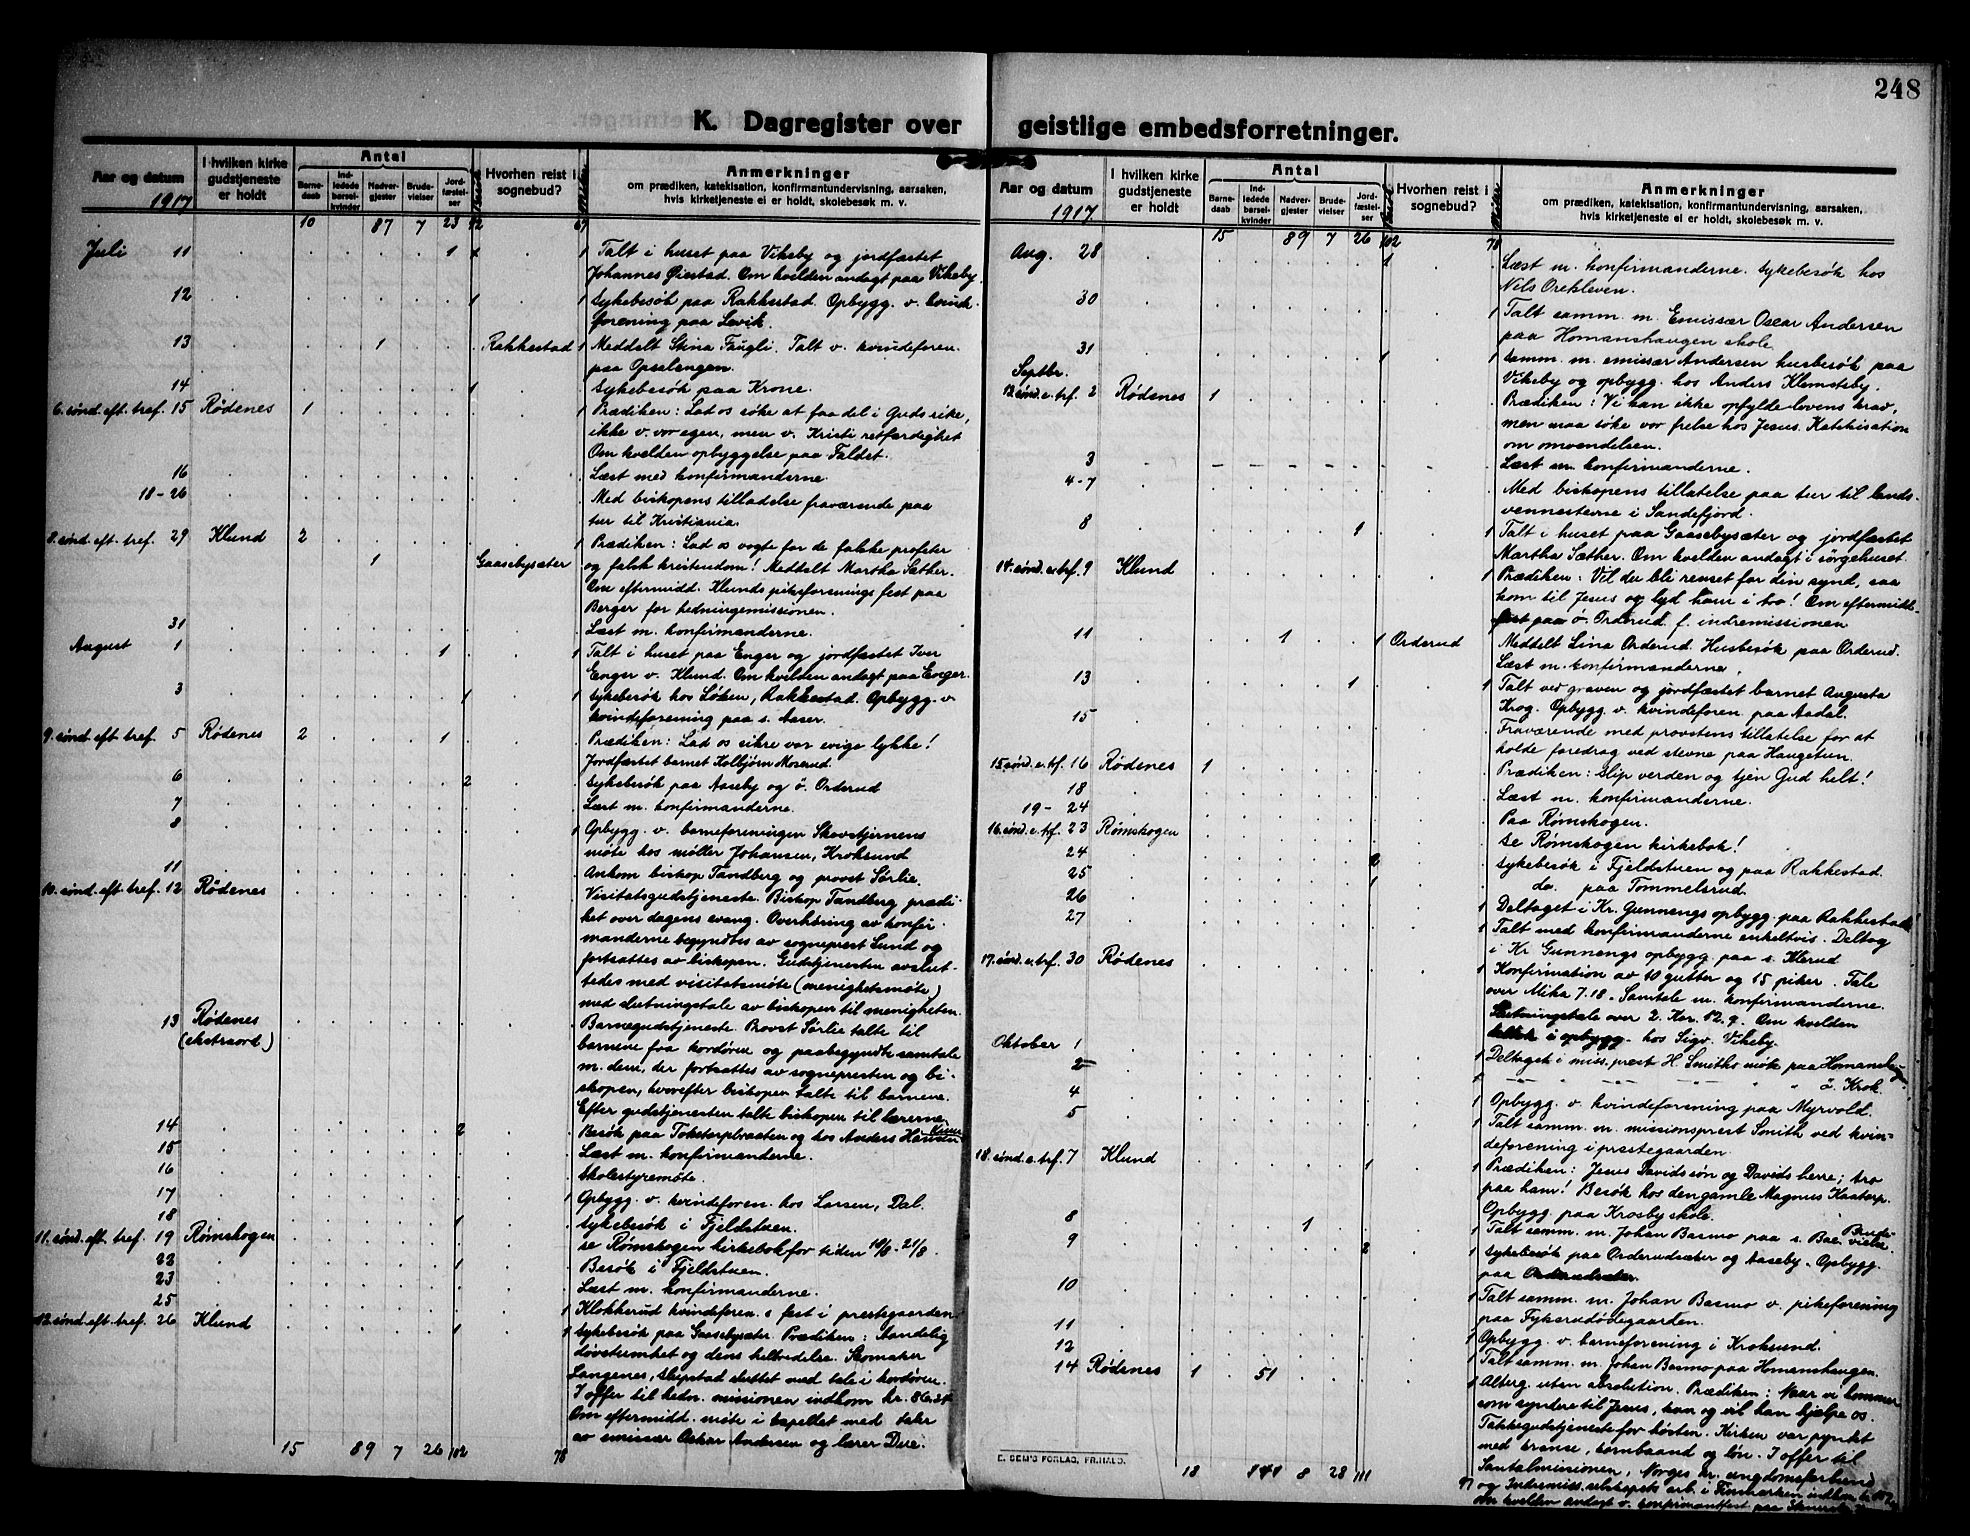 248
K. Dagregister over geistlige embedsforretninger.
Aar og datum
1917
I hvilken kirke gudstjeneste er holdt
Antal
Barnedaab
Indledede barselkvinder
Nadvergjester
Brudevielser
Jordfæstelser
Hvorhen reist i sognebud?
Anmerkninger
om prædiken, katekisation, konfirmantundervisning, aarsaken,
hvis kirketjeneste ei er holdt, skolebesøk m. v.
10 87 7 23 92 67
Juli 11 1 1 Talt i huset paa Vikeby og jordfæstet
Johannes Øiestad. Om kvelden andagt paa Vikeby.
12 1 1 Sykebesøk paa Rakkestad. Opbygg. v. kvinde-
forening paa Levik.
13 1 Rakkestad 1 Meddelt Stina Fagli. Talt v. kvindeforen.
paa Opsalengen.
14 1 Sykebesøk paa Krone.
6. sønd. eft. tref. 15 Rødenes 1 1 Prædiken: Lad os søke at faa del i Guds rike,
ikke v. vor egen, men v. Kristi retfærdighet
Om kvelden opbyggelse paa Faldet.
16 Læst med konfirmanderne.
18-26 Med biskopens tilladelse fraværende paa
tur til Kristiania.
8. sønd. eft. tref. 29 Klund 2 1 Prædiken: Lad os vogte for de falske profeter
1 Gaasebysæter og falsk kristendom! Meddelt Martha Sæther.
Om eftermidd. Klunds pikeforenings fest paa
Berger for hedningemissionen.
31 Læst m. konfirmanderne.
August 1 1 1 Talt i huset paa Enger og jordfæstet Iver
Enger v. Klund. Om kvelden andagt paa Enger.
3 1 1 Sykebesøk hos Løken, Rakkestad. Opbygg. v
kvindeforening paa s. Aaser.
9. sønd. eft. tref. 5 Rødenes 2 1 Prædiken: Lad os sikre vor evige lykke!
Jordfæstet barnet Kolbjørn Mosrud.
6 2 Sykebesøk paa Aaseby og ö. Orderud
7 Læst m. konfirmanderne.
8 1 Opbygg. v. barneforeningen Skovstjernens
møte hos møller Johansen, Kroksund
11 Ankom biskop Tandberg og provst Sørlie.
10. sønd. eft. tref. 12 Rødenes Visitatsgudstjeneste. Biskop Tandberg prædi-
ket over dagens evang. Overhøring av konfir-
manderne begyndtes av sogneprest Lund og
fortsattes av biskopen. Gudstjenesten avslut-
tedes med visitatsmøte (menighetsmøte)
med slutningstale av biskopen til menigheten.
13 Rødenes (ekstraord.) Barnegudstjeneste. Provst Sørlie talte til
barnene fra kordøren og paabegyndte samtale
m. dem, der fortsattes av sognepresten og bi-
skopen, hvorefter biskopen talte til barnene.
Efter gudstjenesten talte biskopen til lærerne.
14 2 Besøk paa Toketorpbraaten og hos Anders Hansen
15 Læst m. konfirmanderne.
16 Skolestyremøte.
17 1 Opbygg. v. kvindeforen. hos Larsen, Dal.
18 1 Sykebesøk i Fjeldstuen.
11. sønd. eft. tref. 19 Rømskogen Se Rømskogen kirkebok for tiden 18/8-21/8.
22 1 Besøk i Fjeldstuen.
23 Læst m. konfirmanderne.
25 1 Klokkerud kvindeforen.s fest i prestegaarden
12. sønd. eft. tref. 26 Klund 1 1 Sykebesøk paa Gaasebysæter. Prædiken: Aandelig
døvstumhet og dens helbredelse. Skomaker
Langenes, Slipstad sluttet med tale i kordøren.
I offer til hedn. missionen indkom kr. 86,24
Om eftermidd. møte i kapellet med taler
av emissær Oskar Andersen og lærer Due.
15 89 7 26 102 78
Aar og datum
1917
I hvilken kirke gudstjeneste er holdt
Antal
Barnedaab
Indledede barselkvinder
Nadvergjester
Brudevielser
Jordfæstelser
Hvorhen reist i sognebud?
Anmerkninger
om prædiken, katekisation, konfirmantundervisning, aarsaken,
hvis kirketjeneste ei er holdt, skolebesøk m. v.
15 89 7 26 102 78
Aug. 28 1 Læst m. konfirmanderne. Sykebesøk hos
Nils Orekleven.
30 1 Talt samm. m. Emissær Oscar Andersen
paa Homanshaugen skole.
31 1 1 Samm. m. emissær Andersen husbesøk paa
Vikeby og opbygg. hos Anders Klemsteby.
Septbr.
13. sønd. e. trf. 2 Rødenes 1 Prædiken: Vi kan ikke opfylde lovens krav,
men maa søke vor frelse hos Jesus. Katekisation
om omvendelsen.
3 Læst m. konfirmanderne.
4-7 Med biskopens tillatelse paa tur til lands-
vennestevne i Sandefjord.
8 1 1 Talt i huset paa Gaasebysæter og jordfæstet
Martha Sæther. Om kvelden andagt i sørgehuset.
14. sønd. e. trf. 9 Klund 1 Prædiken: Vil du bli renset for din synd, saa
kom til Jesus og lyd ham i tro! Om eftermidd.
fest paa ö. Orderud f. indremissionen
11 1 1 Orderud Meddelt Lina Orderud. Husbesøk paa Orderud.
Læst m. konfirmanderne.
13 1 1 Talt ved graven og jordfæstet barnet Augusta
Krog. Opbygg. v. kvindeforen. paa Aadal.
15 Fraværende med provstens tillatelse for at
holde foredrag ved stevne paa Haugetun.
15. sønd. e. trf. 16 Rødenes 1 Prædiken: Slip verden og tjen Gud helt!
18 Læst m. konfirmanderne.
19-24 Paa Rømskogen.
16. sønd. e. trf. 23 Rømskogen Se Rømskogen kirkebok!
24 2 Sykebesøk i Fjeldstuen og paa Rakkestad.
25 1 do. paa Tommelsrud.
26 1 Deltaget i Kr. Gunnengs opbygg. paa Rakkestad
27 1 Talt med konfirmanderne enkeltvis. Deltag
i Kr Gunnengs opbygg. paa s. Klerud
17. sønd. e. trf. 30 Rødenes 1 Konfirmation av 10 gutter og 15 piker. Tale
over Mika 7.18. Samtale m. konfirmanderne.
Slutningstale over 2. Kor. 12.9. Om kvelden
i opbygg. hos Sigv. Vikeby.
Oktober 1 1 Deltaget i miss.prest H. Smiths møte paa Homansh.
2 1 -"- -"- -"- " " ö. Krok.
4 1 Opbygg. v. kvindeforening paa Myrvold.
5 1 Talt samm. m. missionsprest Smith ved kvin-
deforening i prestegaarden.
18. sønd. e. trf. 7 Klund 1 1 Prædiken: Jesus Davids søn og Davids herre; tro
paa ham! Besøk hos den gamle Magnus Kaatorp.
Opbygg. paa Krosby skole.
8 1 1 Talt samm. m. Johan Basmo paa s. Boe. Brude-
vielse.
9 2 1 Sykebesøk paa Orderudsæter og Aaseby. Opbygg.
paa Orderudsæter.
10 1 Talt samm. m. Johan Basmo v. pikeforening
paa Fykerudødegaarden.
11 1 Opbygg. v. barneforening i Kroksund.
12 1 Talt samm. m. Johan Basmo paa Homanshaugen.
14 Rødenes 1 51 1 Alterg. uten absolution. Prædiken: Naar vi kommer
som syndere til Jesus, kan og vil han hjælpe os.
Takkegudstjeneste for høsten. Kirken var pyntet
med kranse, kornbaand og løv. I offer til
Santalmissionen, Norges kr. ungdomsforbund
og Indremiss.selskapets arb. i Finmarken indkom
Om kvelden andagt v. konfirmantfest paa
18 141 8 28 111 97
E. SEM'S FORLAG, FR.HALD.